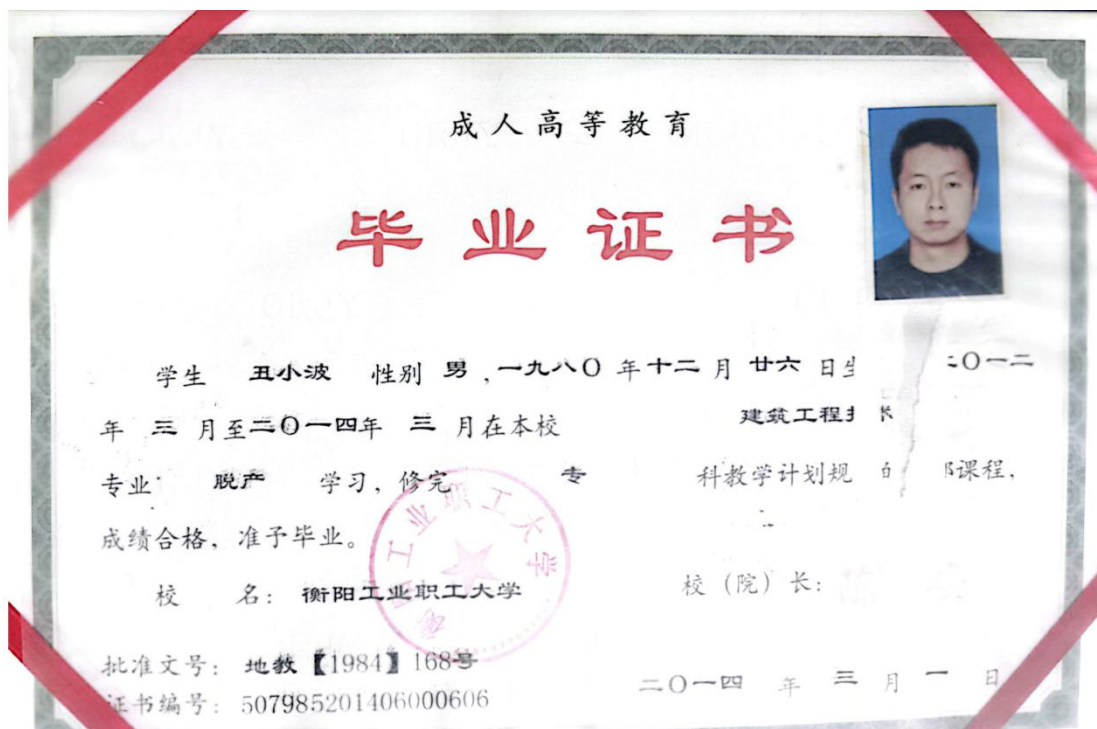 成人高等教育
毕业证书
学生 丑小波 性别 男,一九八〇年十二月廿六日生 二〇一二
年三月至二〇一四年三月在本校 建筑工程技
专业 脱产 学习,修完 专 科教学计划规 课程,
成绩合格,准予毕业。
校 名:衡阳工业职工大学 校(院)长:
批准文号:地教【1984】168号
证书编号:507985201406000606 二〇一四 年 三 月 一 日
衡阳工业职工大学